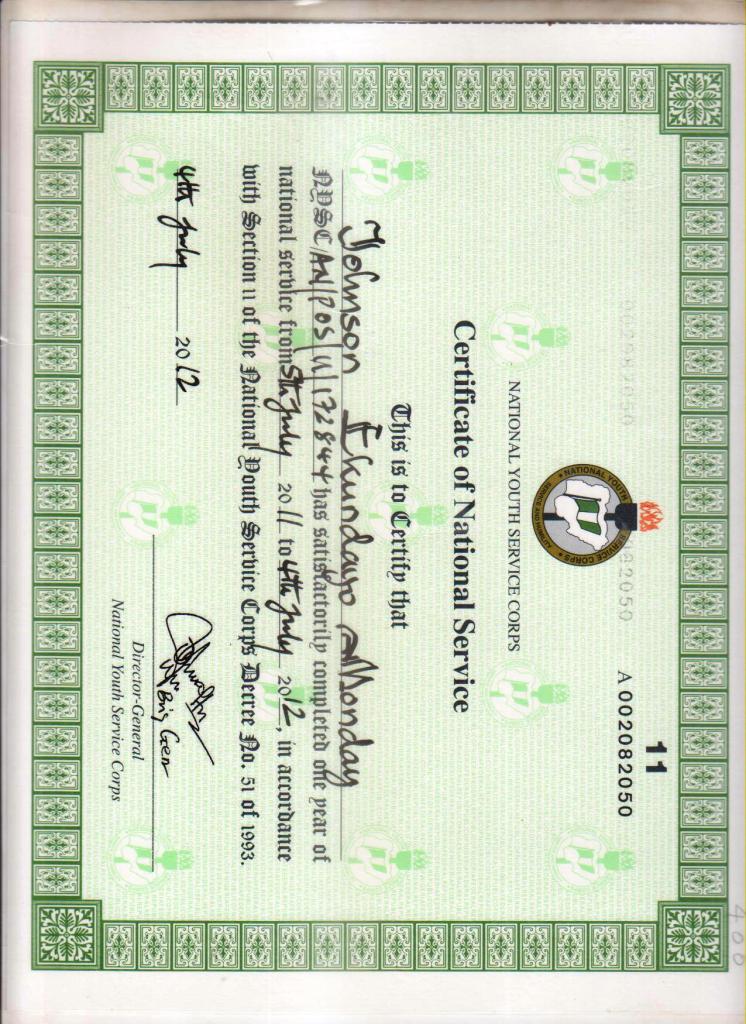 11
A 002082050
NATIONAL YOUTH SERVICE CORPS
NATIONAL YOUTH SERVICE CORPS
Certificate of National Service
This is to Certify that
Johnson Ekundayo Monday
NYSC/AN/POS/11/172844 has satisfactorily completed one year of
national service from 5th July 2011 to 4th July 2012, in accordance
with Section 11 of the National Youth Service Corps Decree No. 51 of 1993.
4th July 2012
Brig Gen
Director-General
National Youth Service Corps
400